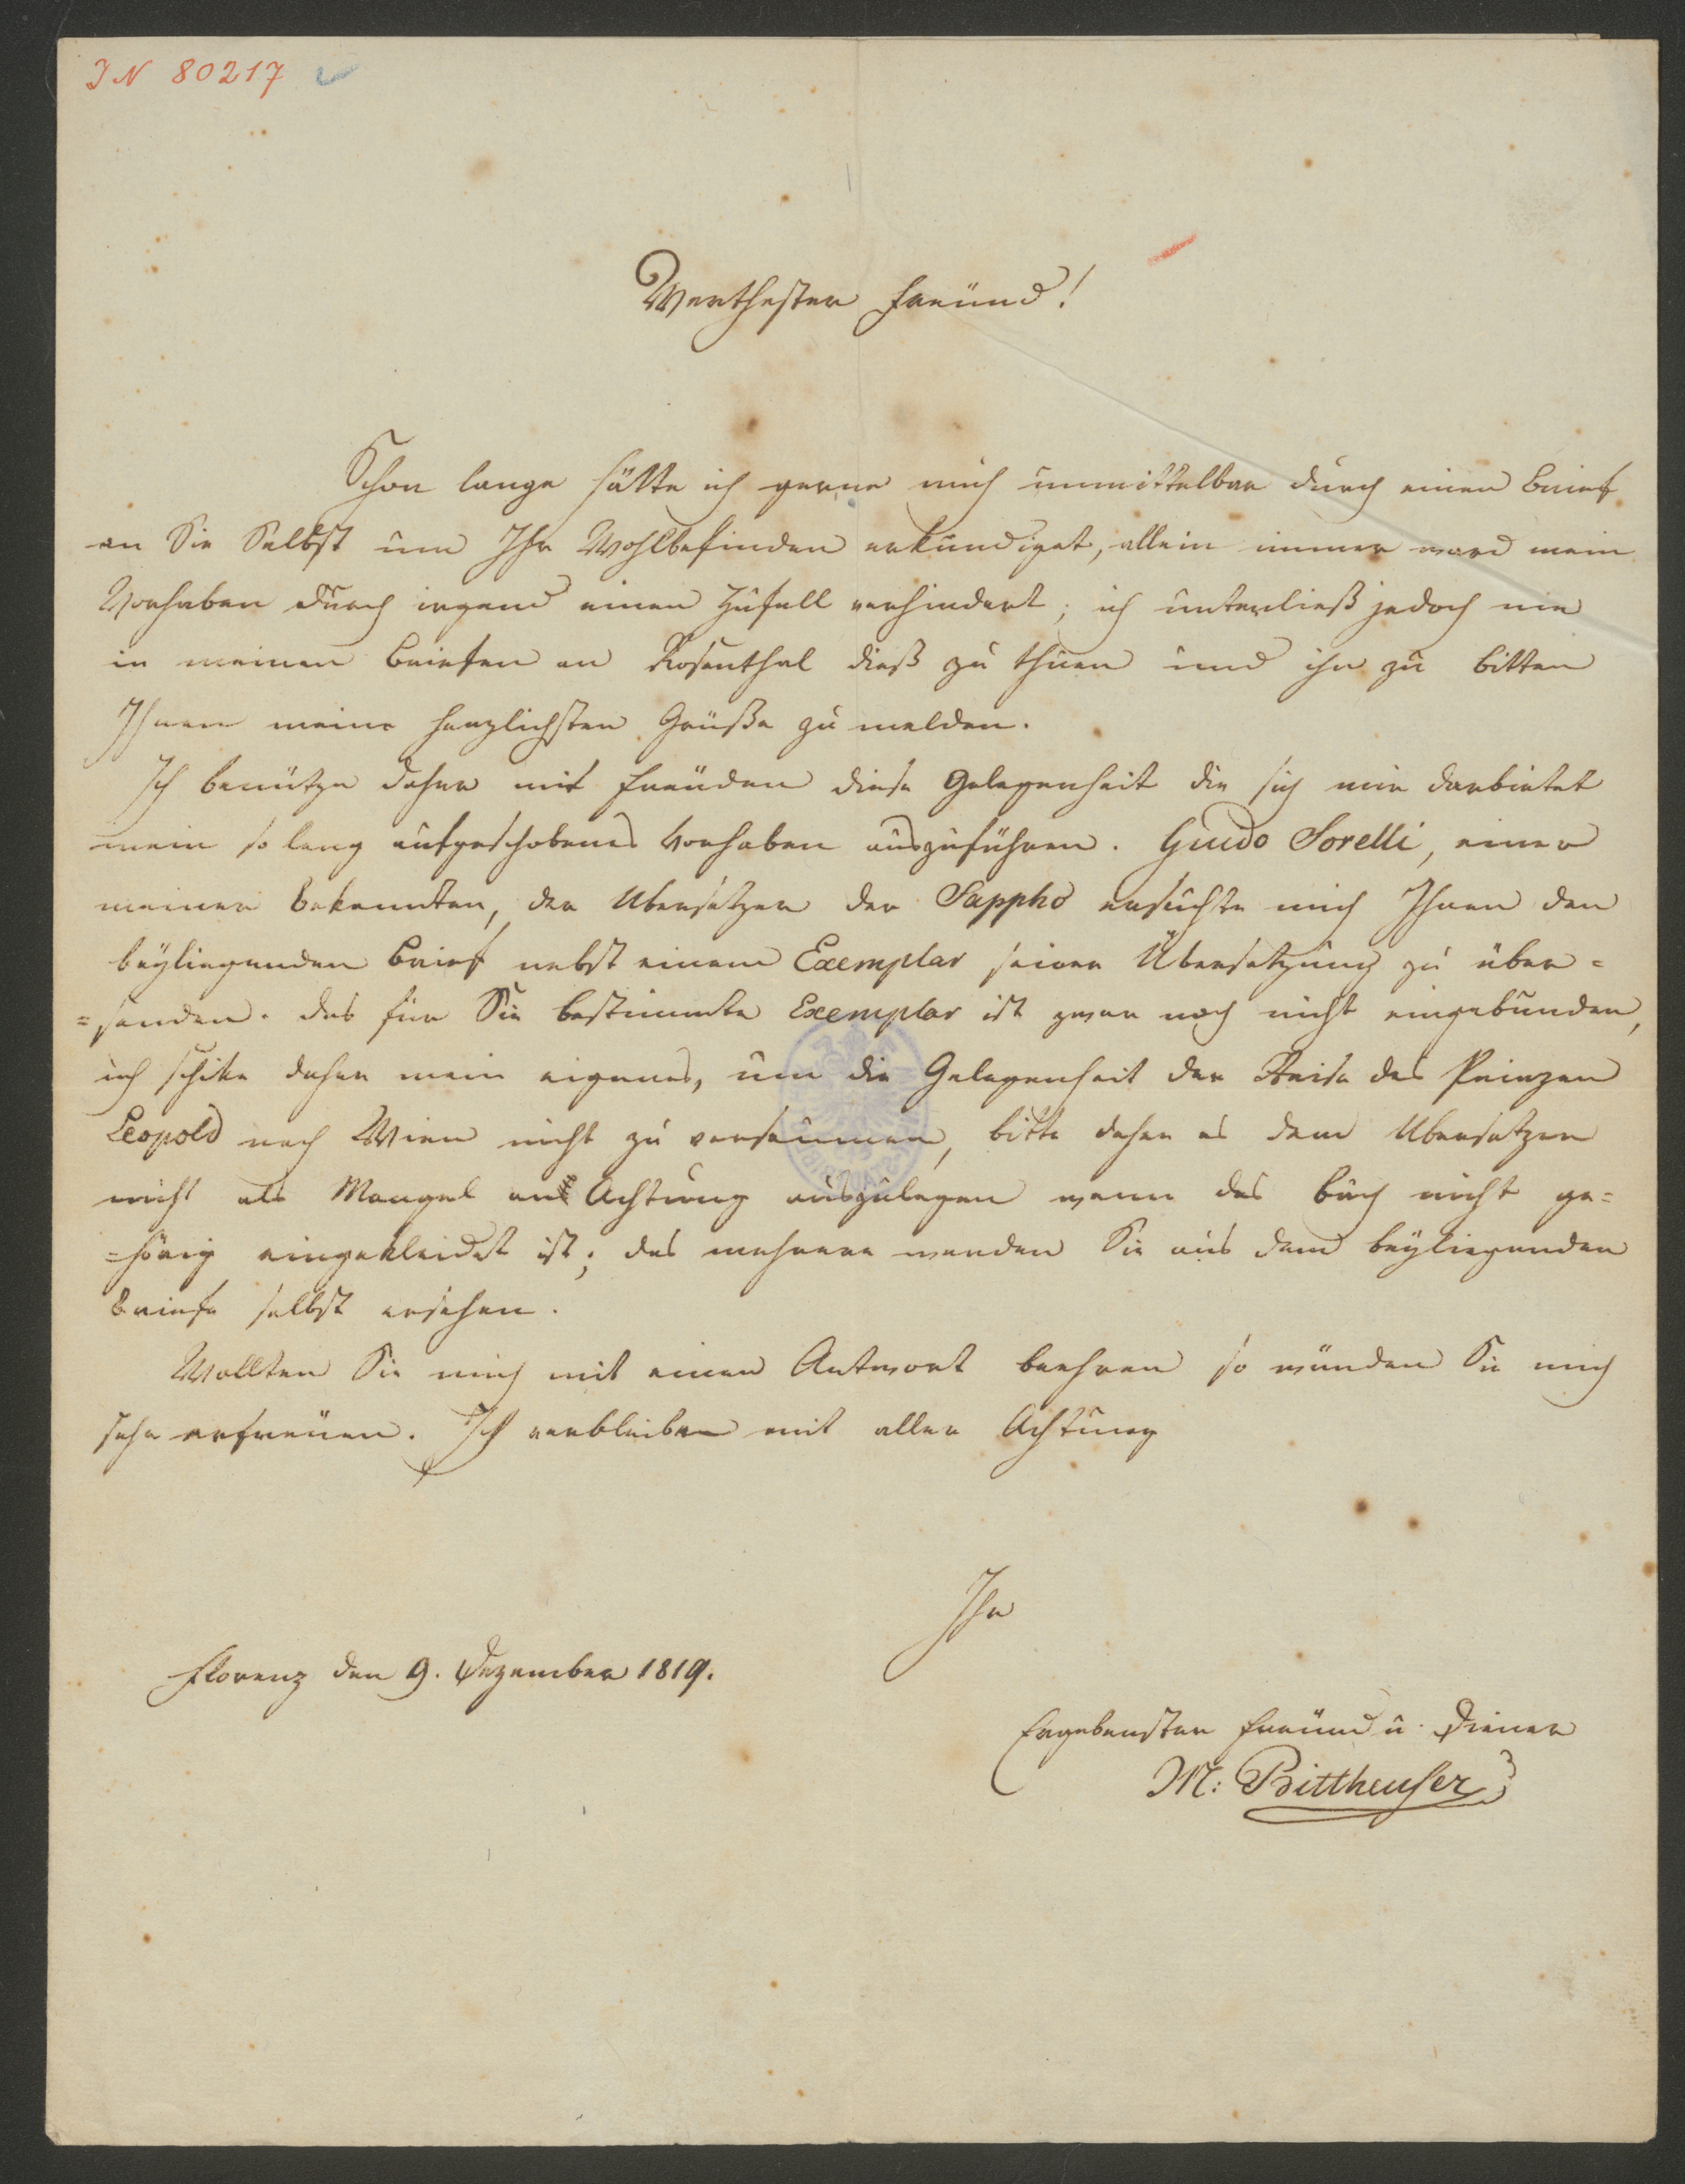 IN 80217
Werthester Freund!
Schon lange hätte ich gerne mich unmittelbar durch einen Brief
an Sie Selbst um Ihr Wohlbefinden erkundiget, allein immer ward mein
Vorhaben durch irgend einen Zufall verhindert; ich unterließ jedoch nie
in meinen Briefen an Rosenthal dieß zu thuen und ihn zu bitten
Ihnen meine herzlichsten Grüße zu melden.
Ich benütze daher mit Freuden diese Gelegenheit die sich mir darbietet
mein so lang aufgeschobenes Vorhaben auszuführen. Guido Sorelli, einer
meiner Bekannten, der Ubersetzer der Sappho ersuchte mich Ihnen den
beyliegenden Brief nebst einem Exemplar seiner Übersetzung zu über=
=senden. das für Sie bestimmte Exemplar ist zwar noch nicht eingebunden,
ich schike daher mein eigenes, um die Gelegenheit der Reise des Prinzen
Leopold nach Wien nicht zu versäumen, bitte daher es dem Ubersetzer
nicht als Mangel an Achtung auszulegen wenn das Buch nicht ge=
=hörig eingekleidet ist; das mehrere werden Sie aus dem beyliegenden
Briefe selbst ersehen.
Wollten Sie mich mit einer Antwort beehren so würden Sie mich
sehr erfreuen. Ich verbleibe mit aller Achtung
Ihr
Florenz den 9. Dezember 1819.
Ergebenster Freund u. Diener
M: Bittheuser